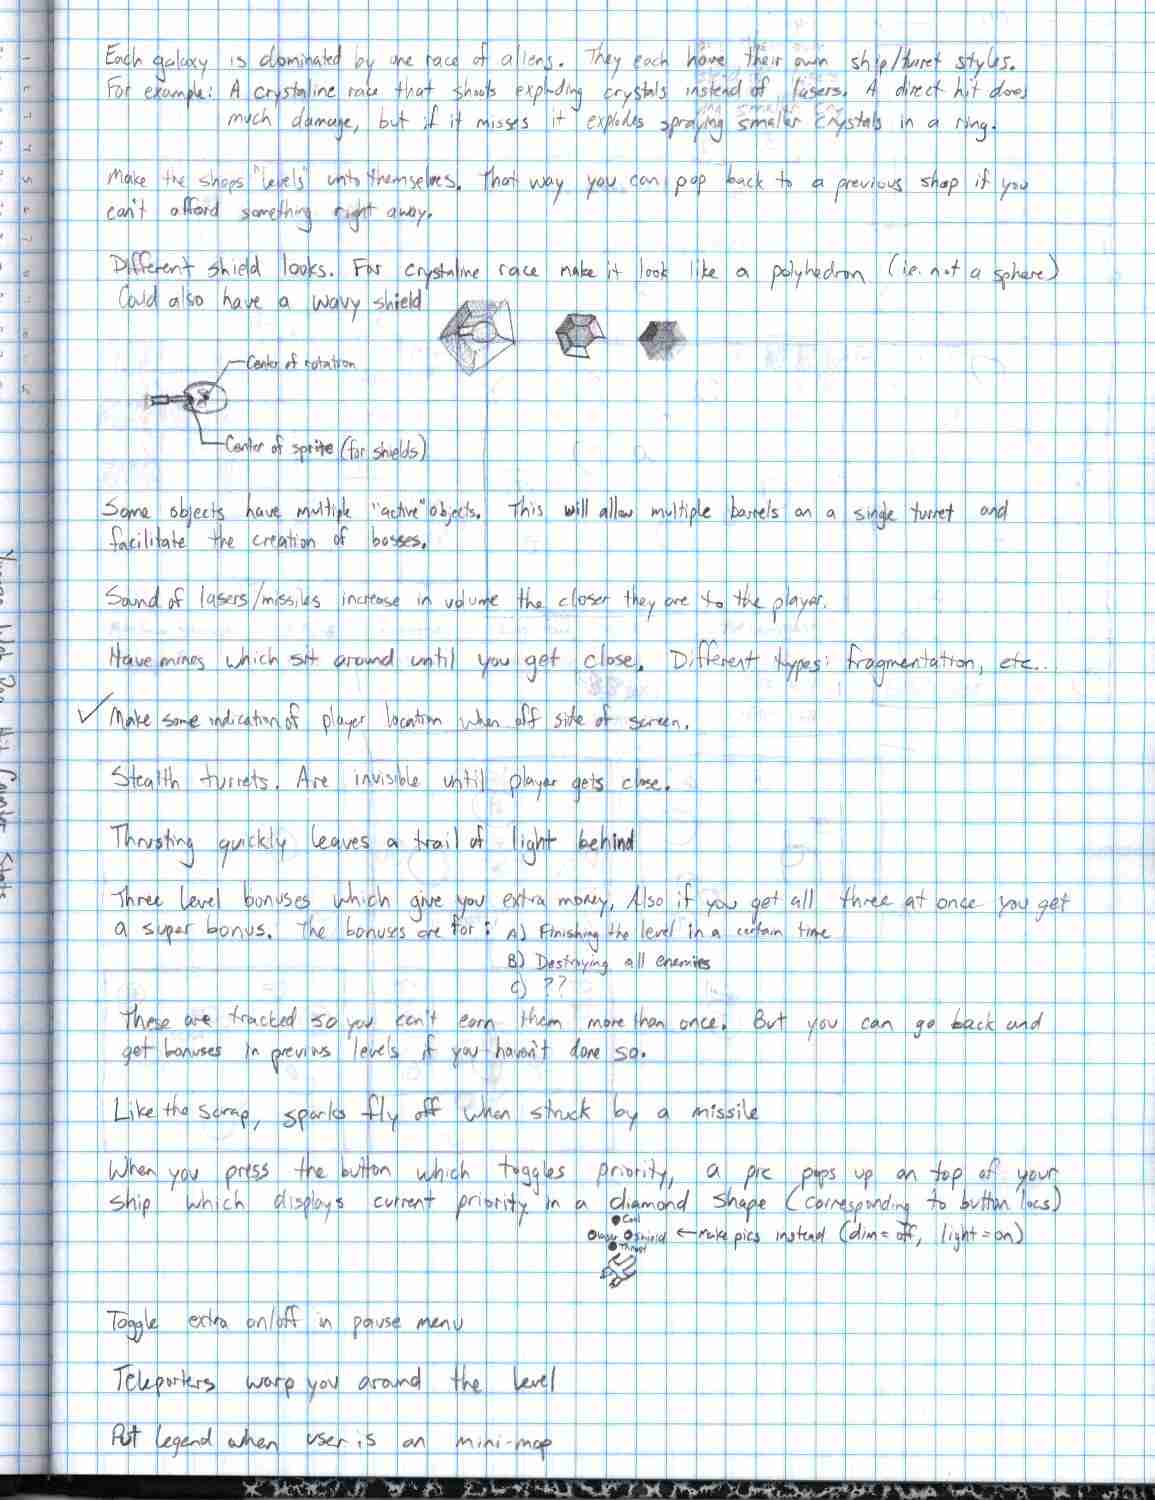 Each galaxy is dominated by one race of aliens. They each have their own ship/turret styles.
For example: A crystaline race that shoots exploding crystals instead of lasers. A direct hit does
much damage, but if it misses it explodes spraying smaller crystals in a ring.
Make the shops "levels" unto themselves. That way you can pop back to a previous shop if you
can't afford something right away.
Different shield looks. For crystaline race make it look like a polyhedron (ie. not a sphere)
Could also have a wavy shield
Center of rotation
Center of sprite (for shields)
Some objects have multiple "active" objects. This will allow multiple barrels on a single turret and
facilitate the creation of bosses.
Sound of lasers/missiles increase in volume the closer they are to the player.
Have mines which sit around until you get close. Different types: fragmentation, etc..
✓ Make some indication of player location when off side of screen.
Stealth turrets. Are invisible until player gets close.
Thrusting quickly leaves a trail of light behind
Three level bonuses which give you extra money. Also if you get all three at once you get
a super bonus. The bonuses are for: A) Finishing the level in a certain time
B) Destroying all enemies
C) ??
These are tracked so you can't earn them more than once. But you can go back and
get bonuses in previous levels if you haven't done so.
Like the scrap, sparks fly off when struck by a missile
When you press the button which toggles priority, a pic pops up on top of your
ship which displays current priority in a diamond shape (corresponding to button locs)
Cool
Laser Shield ← make pics instead (dim = off, light = on)
Thrust
Toggle extra on/off in pause menu
Teleporters warp you around the level
Put legend when user is on mini-map